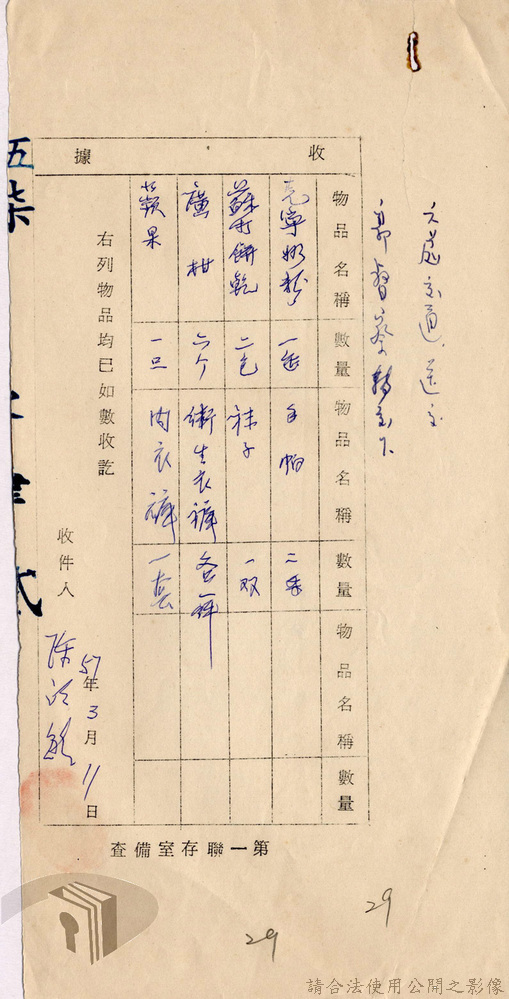 文處交通送至
郭督察轉重下
收據
物品名稱 數量 物品名稱 數量 物品名稱 數量
克寧奶粉 一缶 手帕 二条
蘇打餅乾 二包 袜子 一双
廣柑 六个 衛生衣褲 各一件
蘋果 一只 內衣褲 一套
右列物品均已如數收訖
收件人
57年3月11日
第一聯存室備查
五柒
29
29
請合法使用公開之影像